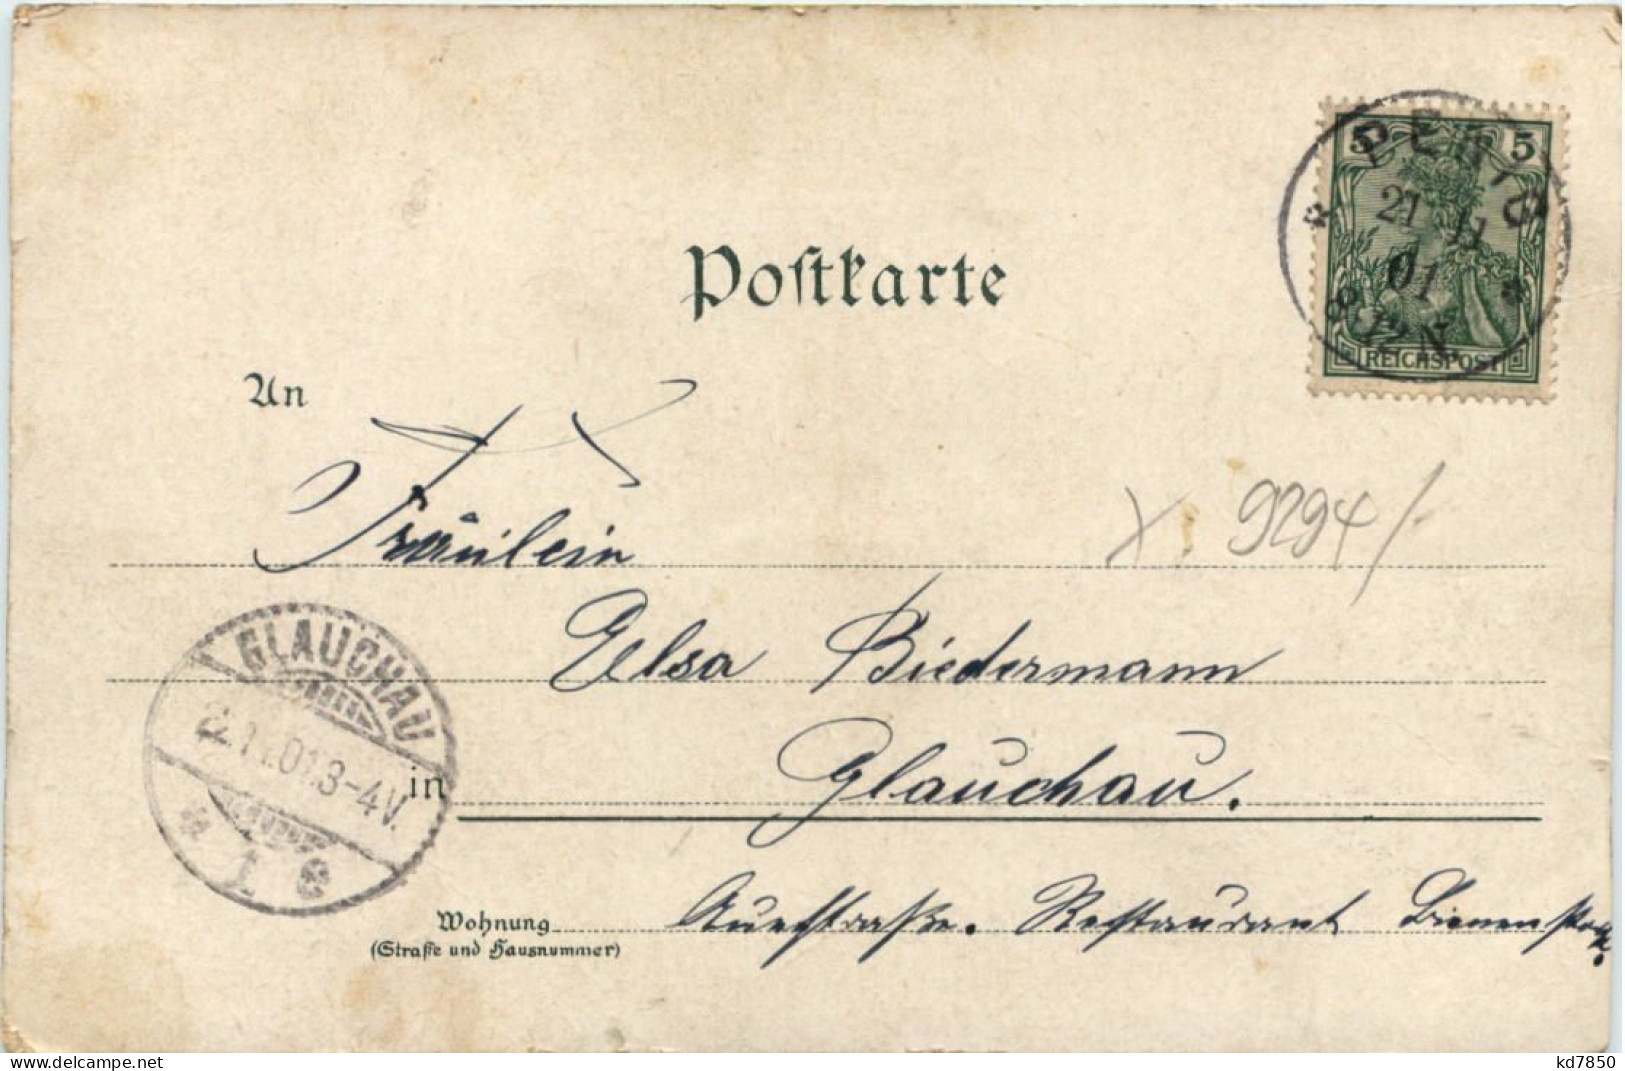 Postkarte
5 5
PENIG
21 11
01
8-12 N
REICHSPOST
An
Fräulein
9294/
Elsa Biedermann
GLAUCHAU
22.11.01.3-4V.
1 e
in Glauchau.
Wohnung Auestraße. Restaurant Bienenstock.
(Straße und Hausnummer)
www.delcampe.net
kd7850